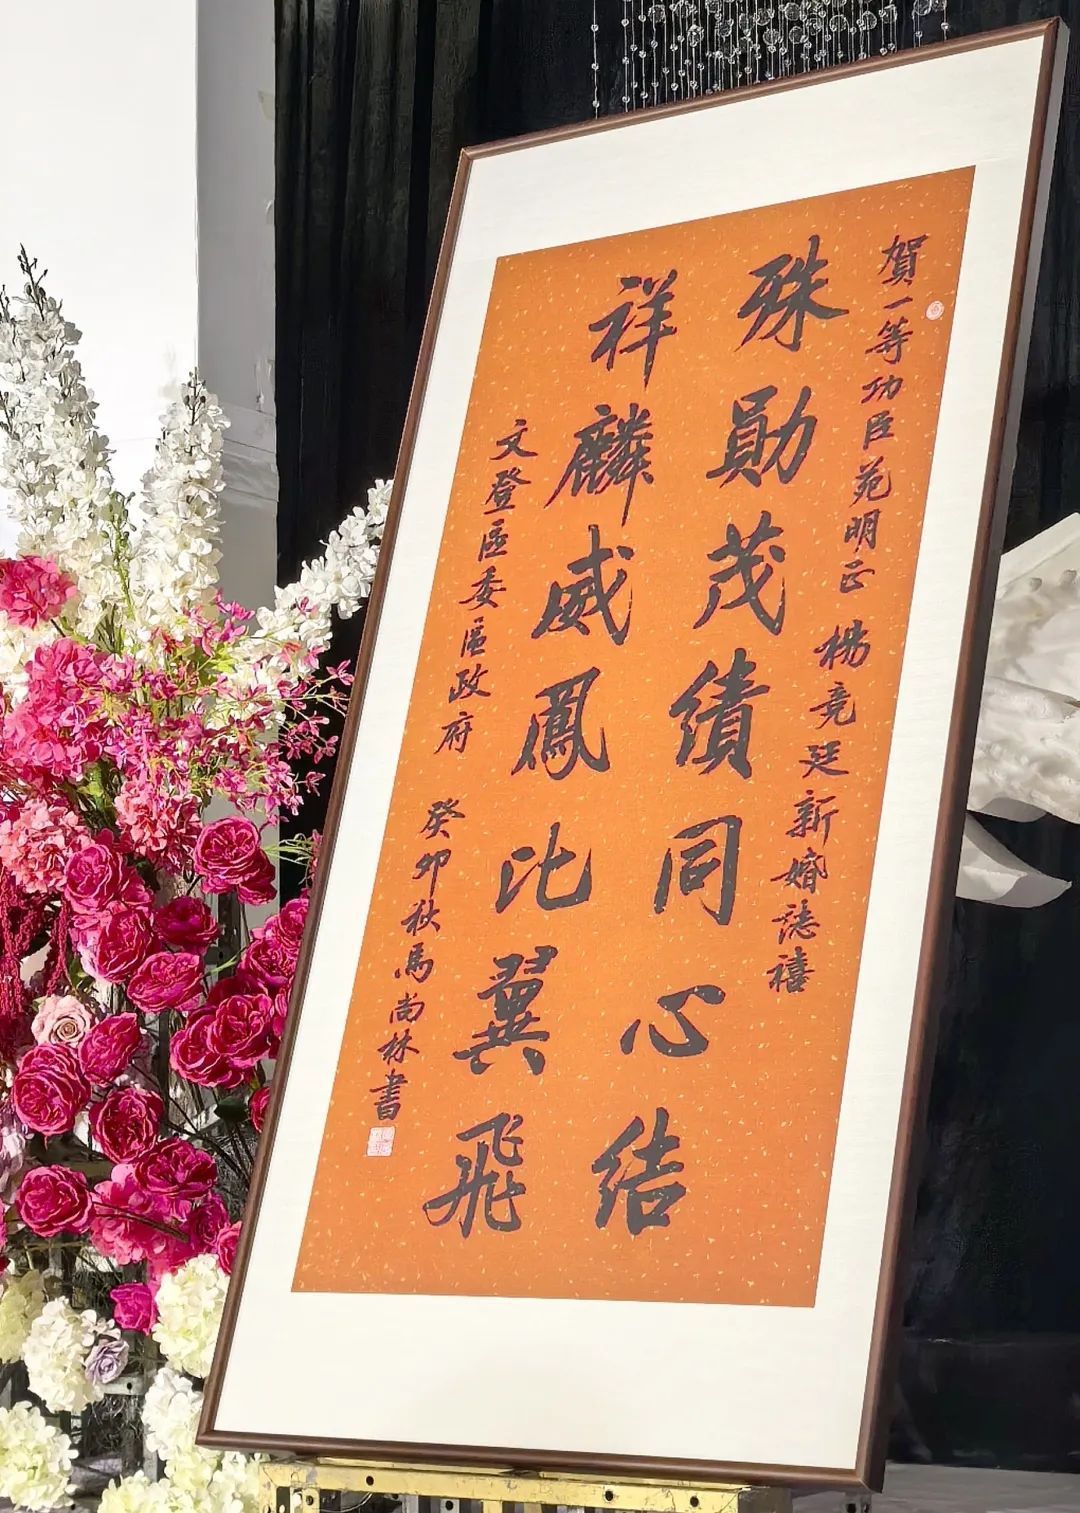 賀一等功臣苑明正 楊竞廷新婚誌禧
殊勛茂績同心结
祥麟威鳳比翼飛
文登區委區政府 癸卯秋馬尚林書